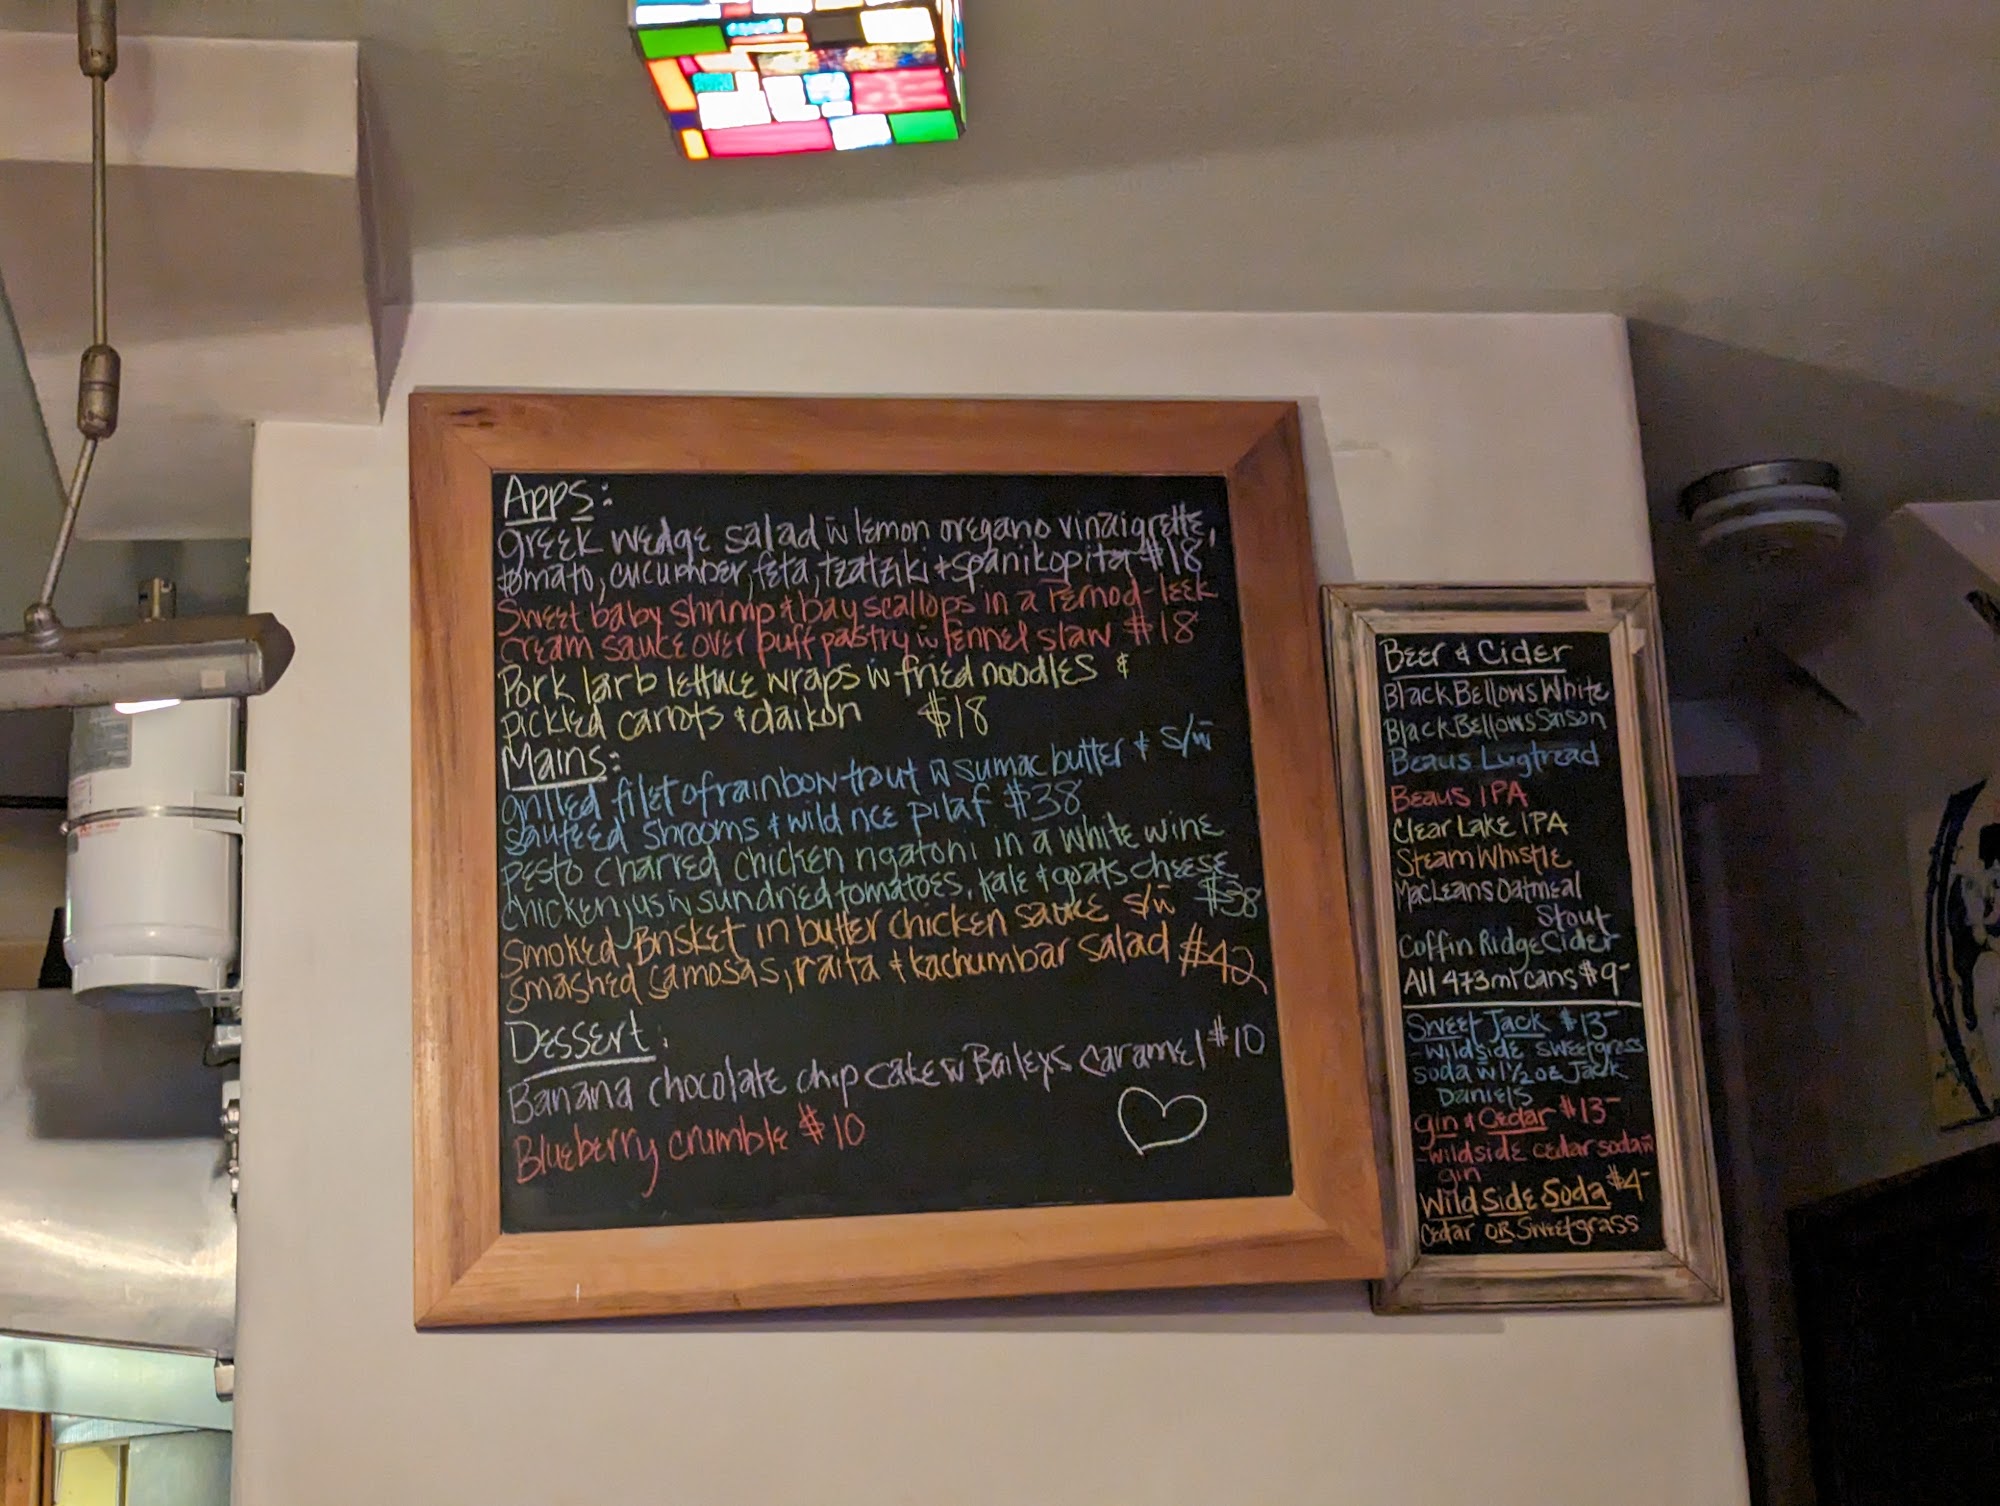 Apps:
Greek wedge salad w lemon oregano vinaigrette,
tomato, cucumber, feta, tzatziki + spanikopita $18
Sweet baby shrimp + bay scallops in a Pernod-leek
cream sauce over puff pastry w fennel slaw $18
Pork larb lettuce wraps w fried noodles +
pickled carrots + daikon $18
Mains:
Grilled filet of rainbow trout w sumac butter + s/w
sauteed shrooms + wild rice pilaf $38
Pesto charred chicken rigatoni in a white wine
chicken jus w sundried tomatoes, kale + goats cheese $38
Smoked Brisket in butter chicken sauce s/w
smashed samosas, raita + kachumbar salad $42
Dessert:
Banana chocolate chip cake w Baileys caramel $10
Blueberry crumble $10
Beer & Cider
Black Bellows White
Black Bellows Saison
Beaus Lugtread
Beaus IPA
Clear Lake IPA
Steam Whistle
MacLeans Oatmeal
Stout
Coffin Ridge Cider
All 473ml cans $9-
Sweet Jack $13-
-wildside sweetgrass
soda w 1 1/2 oz Jack
Daniels
Gin & Cedar $13-
-wildside cedar soda w
gin
Wild Side Soda $4-
Cedar OR Sweetgrass